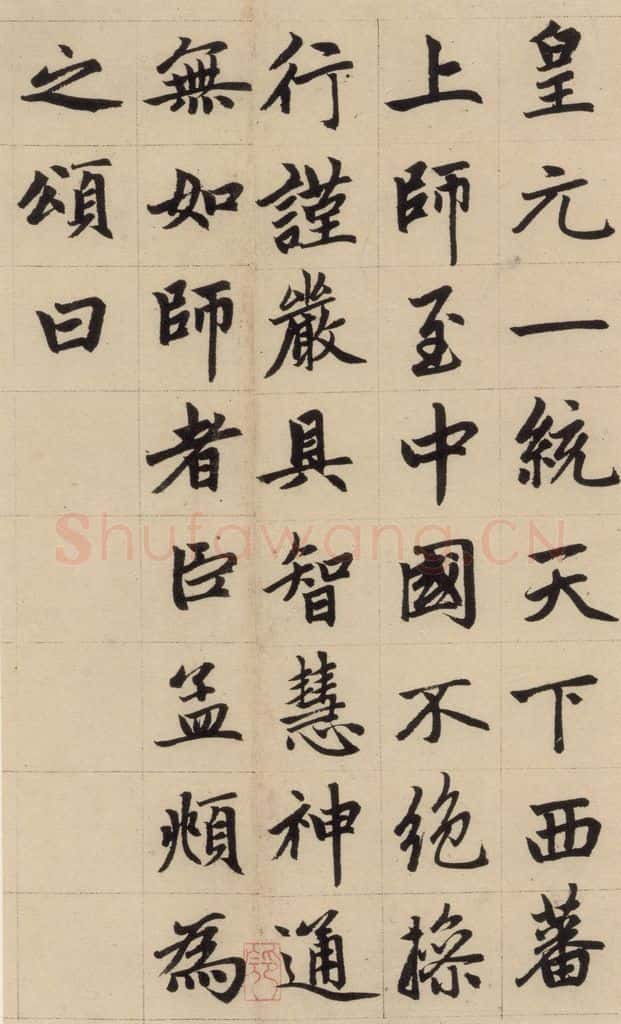 皇元一統天下西蕃
上師至中國不絶操
行謹嚴具智慧神通
無如師者臣孟頫為
之頌曰
Shufawang.CN